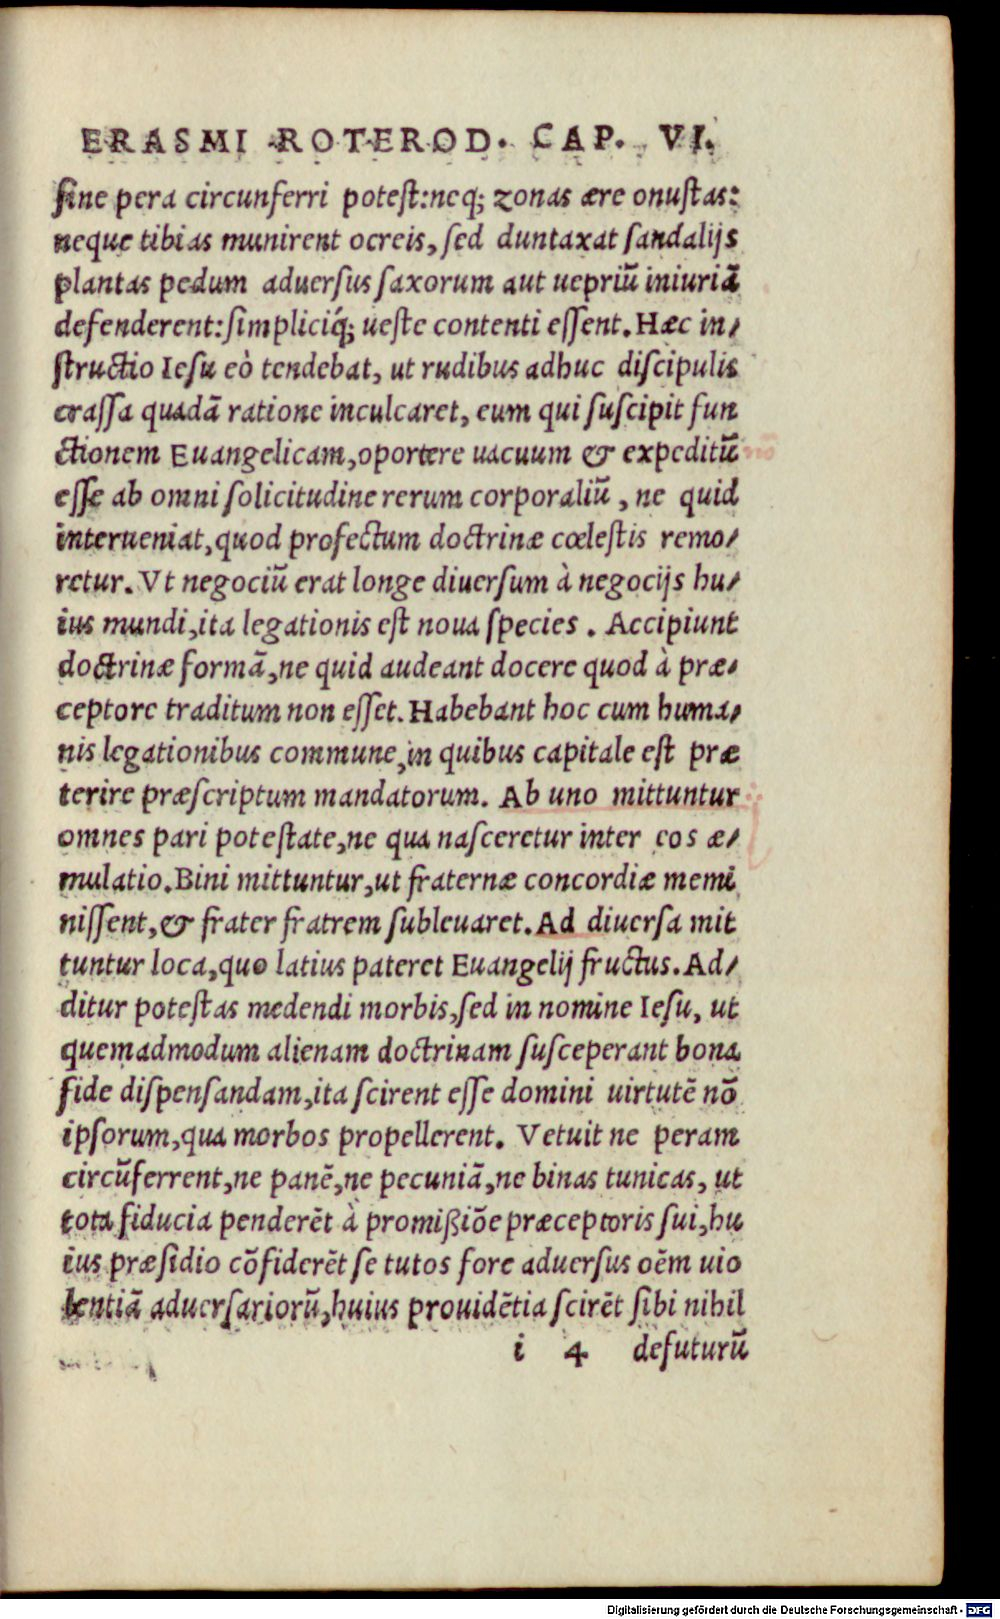 ERASMI ROTEROD. CAP. VI.
ſine pera circunferri poteſt:neq; zonas ære onuſtas:
neque tibias munirent ocreis, ſed duntaxat ſandalijs
plantas pedum aduerſus ſaxorum aut uepriũ iniuriã
defenderent:ſimpliciq́; ueſte contenti eſſent. Hæc in/
ſtructio Ieſu eò tendebat, ut rudibus adhuc diſcipulis
craſſa quadã ratione inculcaret, eum qui ſuſcipit fun
ctionem Euangelicam,oportere uacuum & expeditũ
eſſe ab omni ſolicitudine rerum corporaliũ, ne quid
interueniat,quod profectum doctrinæ cœleſtis remo/
retur. Vt negociũ erat longe diuerſum à negocijs hu/
ius mundi,ita legationis eſt noua ſpecies. Accipiunt
doctrinæ formã,ne quid audeant docere quod à præ/
ceptore traditum non eſſet. Habebant hoc cum huma/
nis legationibus commune,in quibus capitale eſt præ
terire præſcriptum mandatorum. Ab uno mittuntur
omnes pari poteſtate,ne qua naſceretur inter eos æ/
mulatio. Bini mittuntur,ut fraternæ concordiæ memi
niſſent,& frater fratrem ſubleuaret. Ad diuerſa mit
tuntur loca,quo latius pateret Euangelij fructus. Ad/
ditur poteſtas medendi morbis,ſed in nomine Ieſu, ut
quemadmodum alienam doctrinam ſuſceperant bona
fide diſpenſandam,ita ſcirent eſſe domini uirtutẽ nõ
ipſorum,qua morbos propellerent. Vetuit ne peram
circũferrent,ne panẽ,ne pecuniã,ne binas tunicas, ut
tota fiducia penderẽt à promißiõe præceptoris ſui,hu
ius præſidio cõfiderẽt ſe tutos fore aduerſus oẽm uio
lentiã aduerſariorũ,huius prouidẽtia ſcirẽt ſibi nihil
i 4 defuturũ
Digitalisierung gefördert durch die Deutsche Forschungsgemeinschaft - DFG